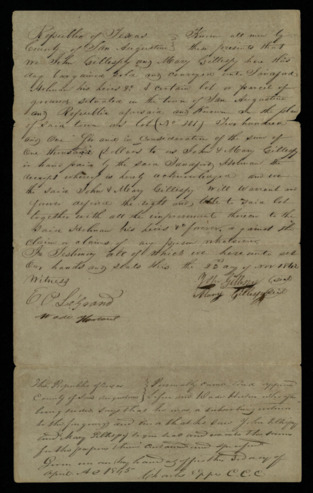 Republic of Texas } Know all men by
County of San Augustine } these presents that
we John Gillespy and Mary Gillespy have this
day bargained sold and conveyed unto
Holman his heirs & a certain lot or parcel of
ground situated in the town of San Augustine
and Republic aforesaid and known in the plan
of said town as Lot No. 201 Two hundred
and One for and in consideration of the sum of
One Hundred Dollars to us John & Mary Gillespy
in hand paid by the said Holman the
receipt whereof is hereby acknowledged and we
the said John & Mary Gillespy will warrant and
forever defend the right and title to said lot
together with all the improvements thereon to the
said Holman his heirs & forever against the
claim or claims of any person whatsoever
In Testimony all of which we have unto set
our hands and seals this the 22d day of Nov 184
Witness
John Gillespy Seal
Mary Gillespy Seal
O C LeGrand
The Republic of Texas } Personally came and appeared
County of San Augustine } before me
being duly says that he was a subscribing witness
to the foregoing and that he saw John Gillespy
and Mary Gillespy
for the purposes therein
Given under my hand and officially 2d day of
April AD 1845
Charles Epps C.C.C